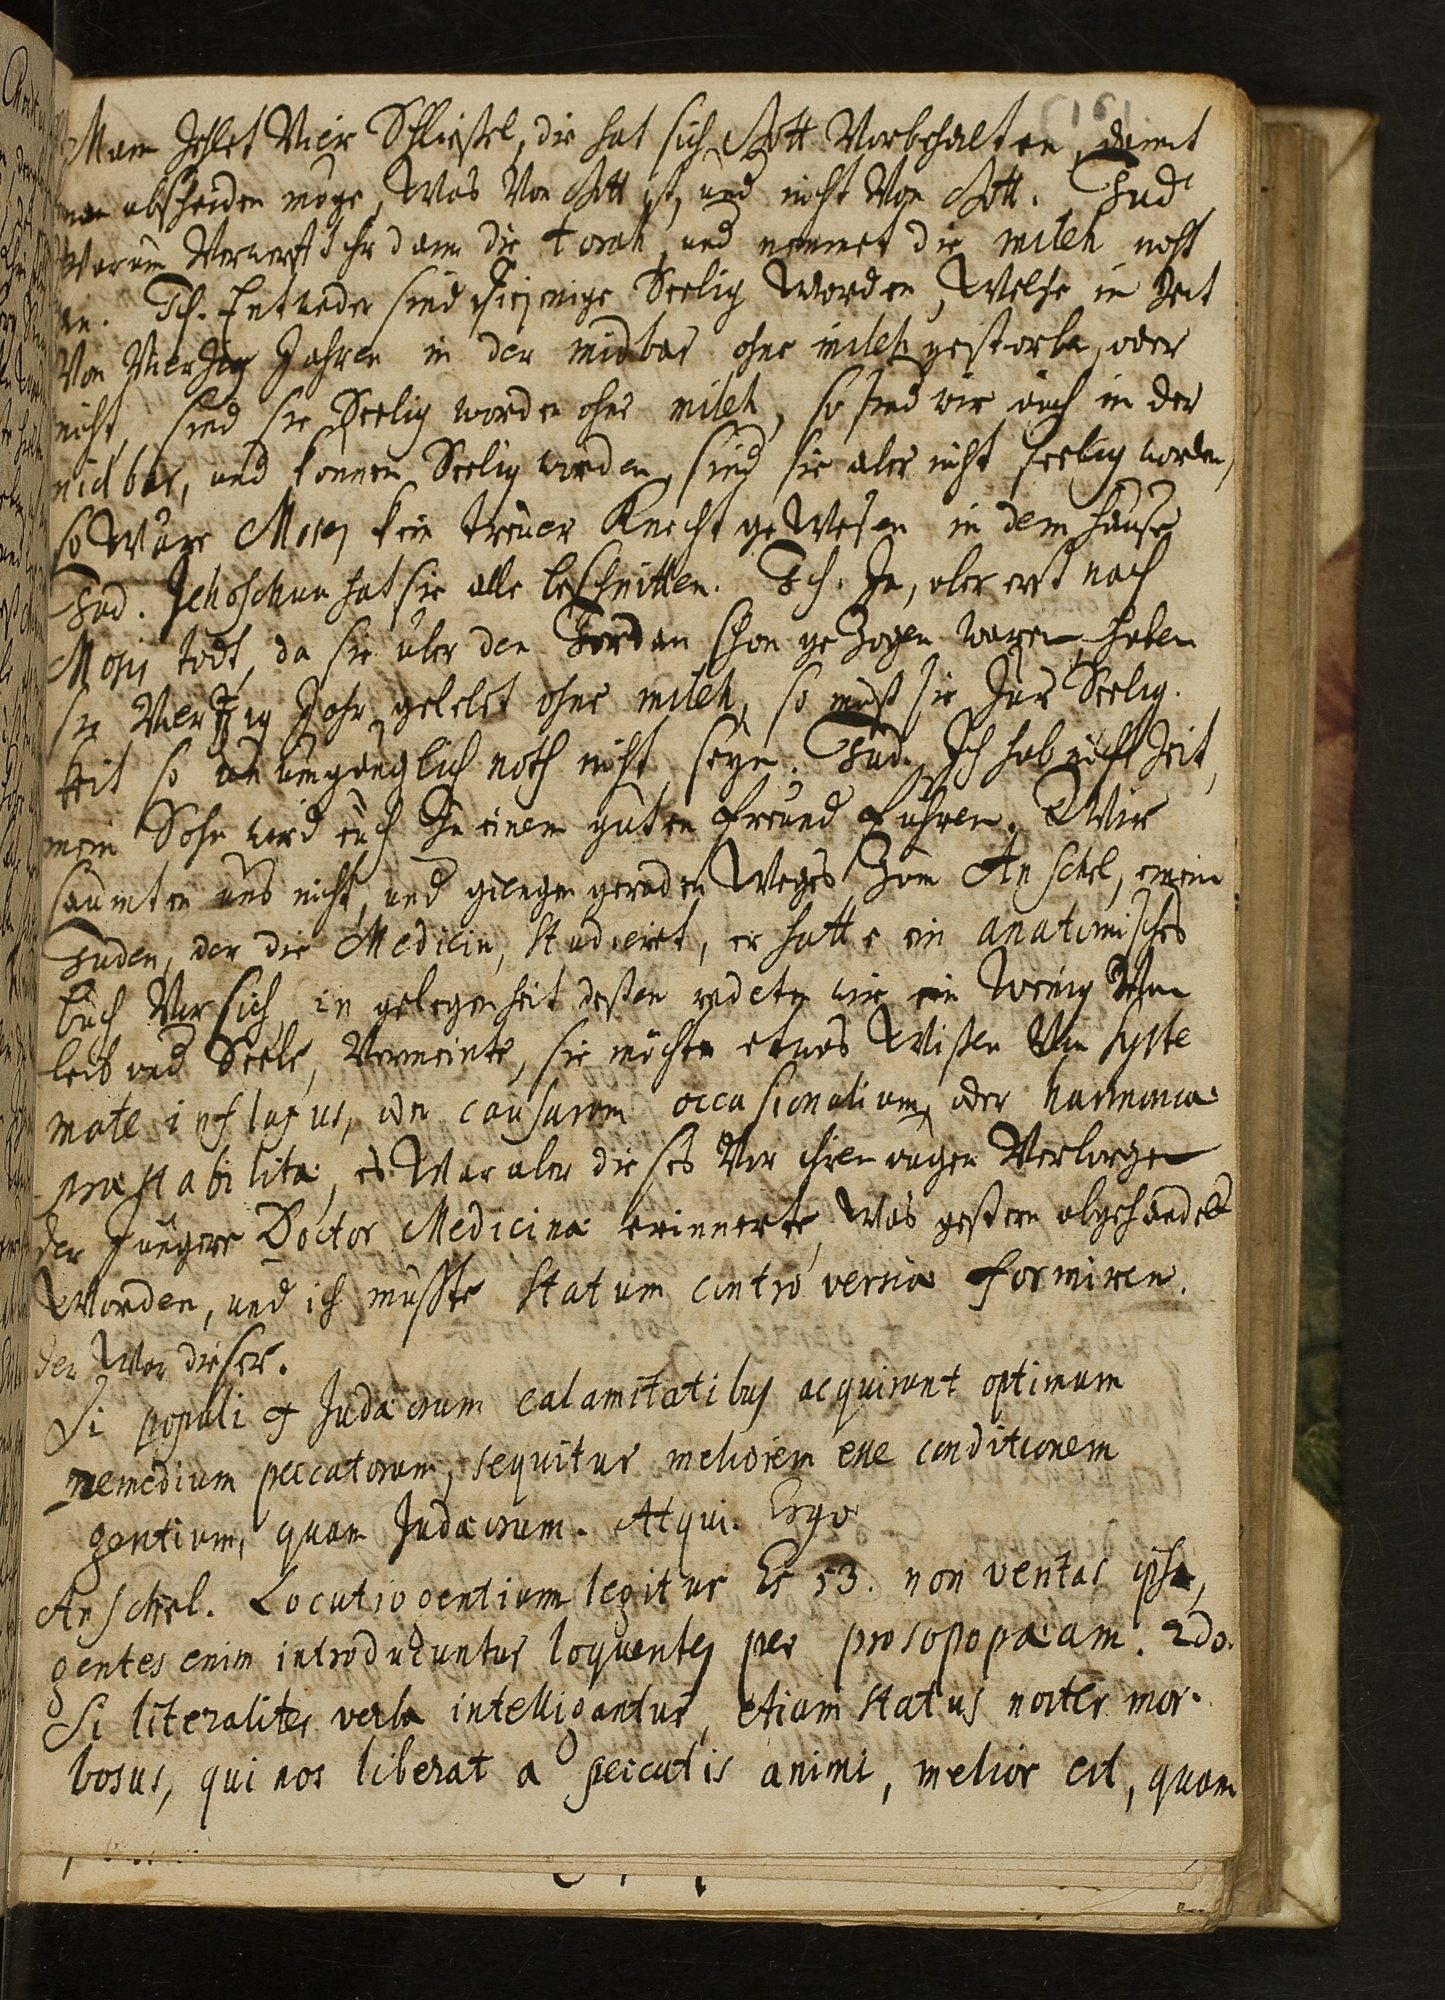 (161)
Man zehlet Vier Schlüßel, die hat sich Gott Vorbehalten, damit
man abscheiden möge, Was Von Gott ist, und nicht Von Gott. Jud
Warum Verwerfft ihr dann die torah, und nemmet die milah nicht
an. Ich. Entweder sind diejenige Seelig Worden, Welche in Zeit
Von Vierzig Jahren in der midbar ohne milah gestorben, oder
nicht, sind sie Seelig worden ohne milah, so sind wir auch in der
midbar, und können Seelig werden, sind sie aber nicht seelig worden,
so Wäre Moses kein treuer Knecht geWesen in dem Hause
Jud. Jehoschua hat sie alle beschnitten. Ich. Ja, aber erst nach
Mosis todt, da sie über den Jordan schon gezogen waren, haben
sie Vierzig Jahr gelebt ohne milah, so muß sie zur Seelig-
keit so unumgänglich noth nicht seyn. Jud. Ich hab nicht Zeit,
mein Sohn wird euch zu einem guten Freund führen. Wir
saumten uns nicht, und giengen geraden Weges zum Anschel, einem
Juden, der die Medicin, studieret, er hatte ein anatomisches
buch Vor sich, in gelegenheit deßen redeten wir ein wenig Von
leib und Seele, Vermeinte, sie möchten etwas Wißen Von syste
mate influxus, oder causarum occasionalium, oder harmonia
præstabilita, es War aber dieses Vor ihren augen Verborgen
der jüngere Doctor Medicinæ erinnerte, Was gestern abgehandelt
Worden, und ich mußte statum controversiæ formiren.
der War dieser.
Si populi ex Judæorum calamitatibus acquirunt optimum
remedium peccatorum, sequitur meliorem esse conditionem
gentium, quam Judæorum. Atqui. Ergo
Anschel. Locutio gentium legitur Es 53. non veritas ipsa,
gentes enim introducuntur loquentes per prosopopæiam. 2do.
Si literaliter verba intelligantur, etiam status noster mor-
bosus, qui nos liberat a peccatis animi, melior est, quam